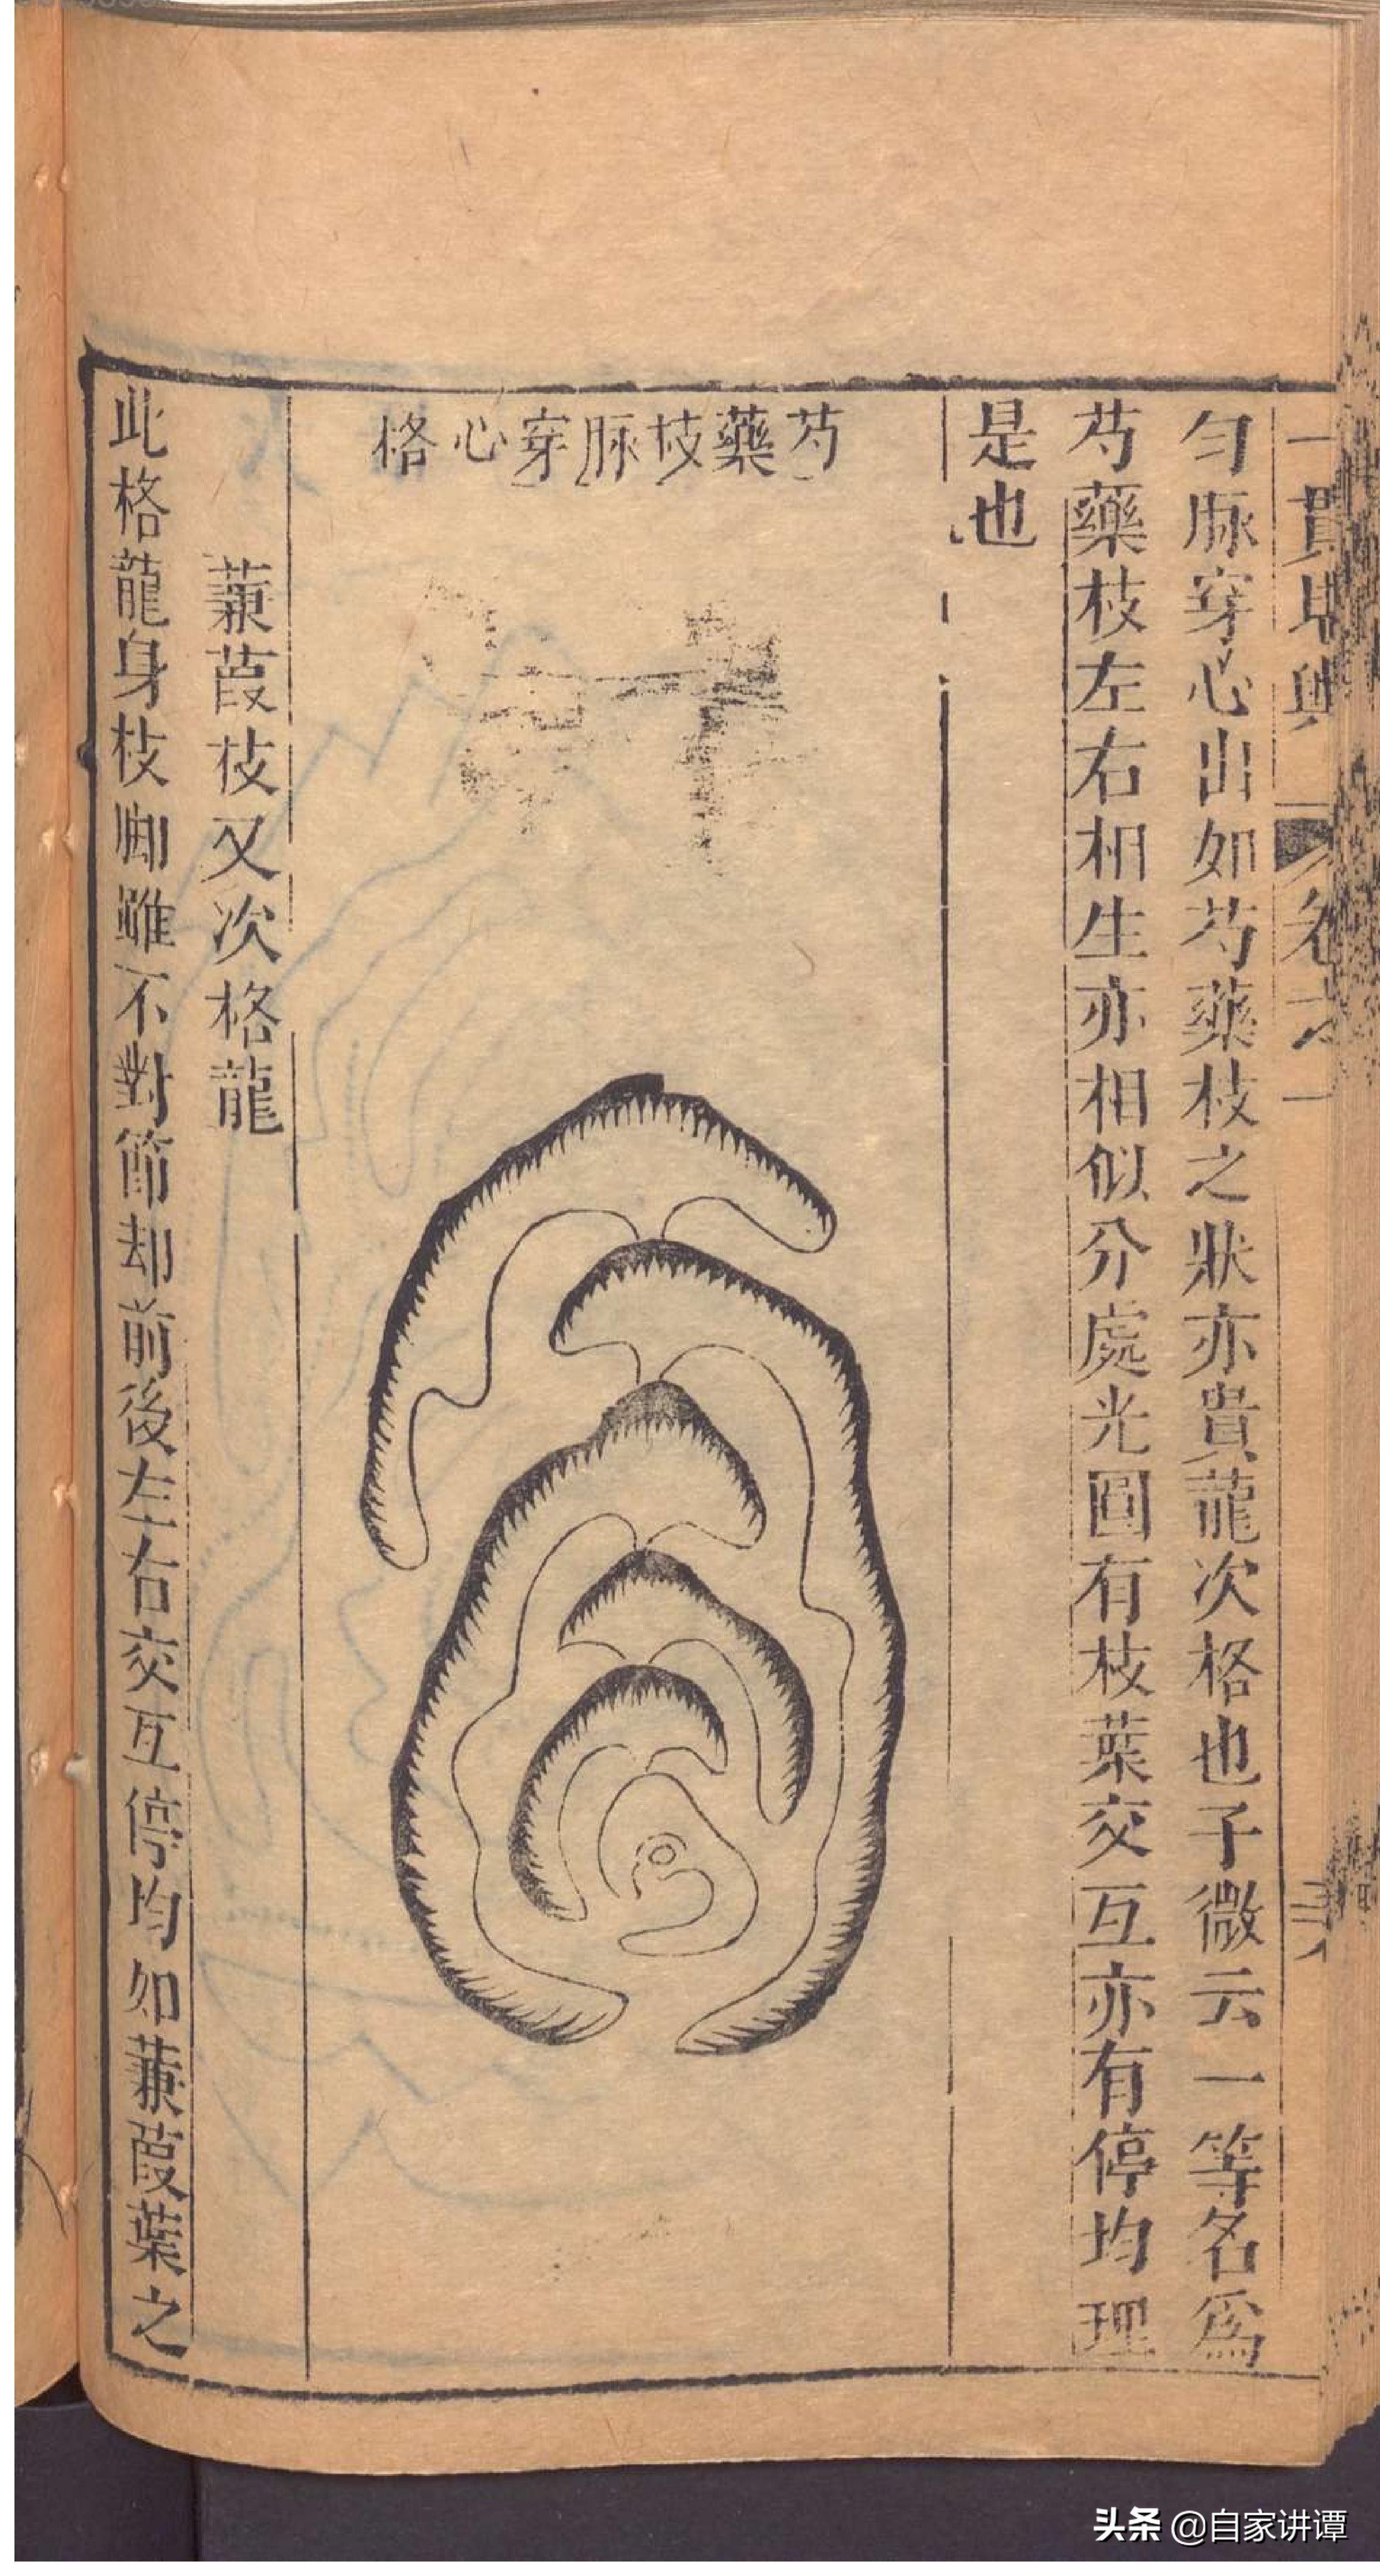 一貫堪輿 卷六
勻脉穿心出如芍藥枝之狀亦貴龍次格也子微云一等名爲
芍藥枝左右相生亦相似分處光圓有枝葉交互亦有停均理
是也
芍藥枝脉穿心格
蒹葭枝又次格龍
此格龍身枝脚雖不對節却前後左右交互停均如蒹葭葉之
头条 @自家讲谭